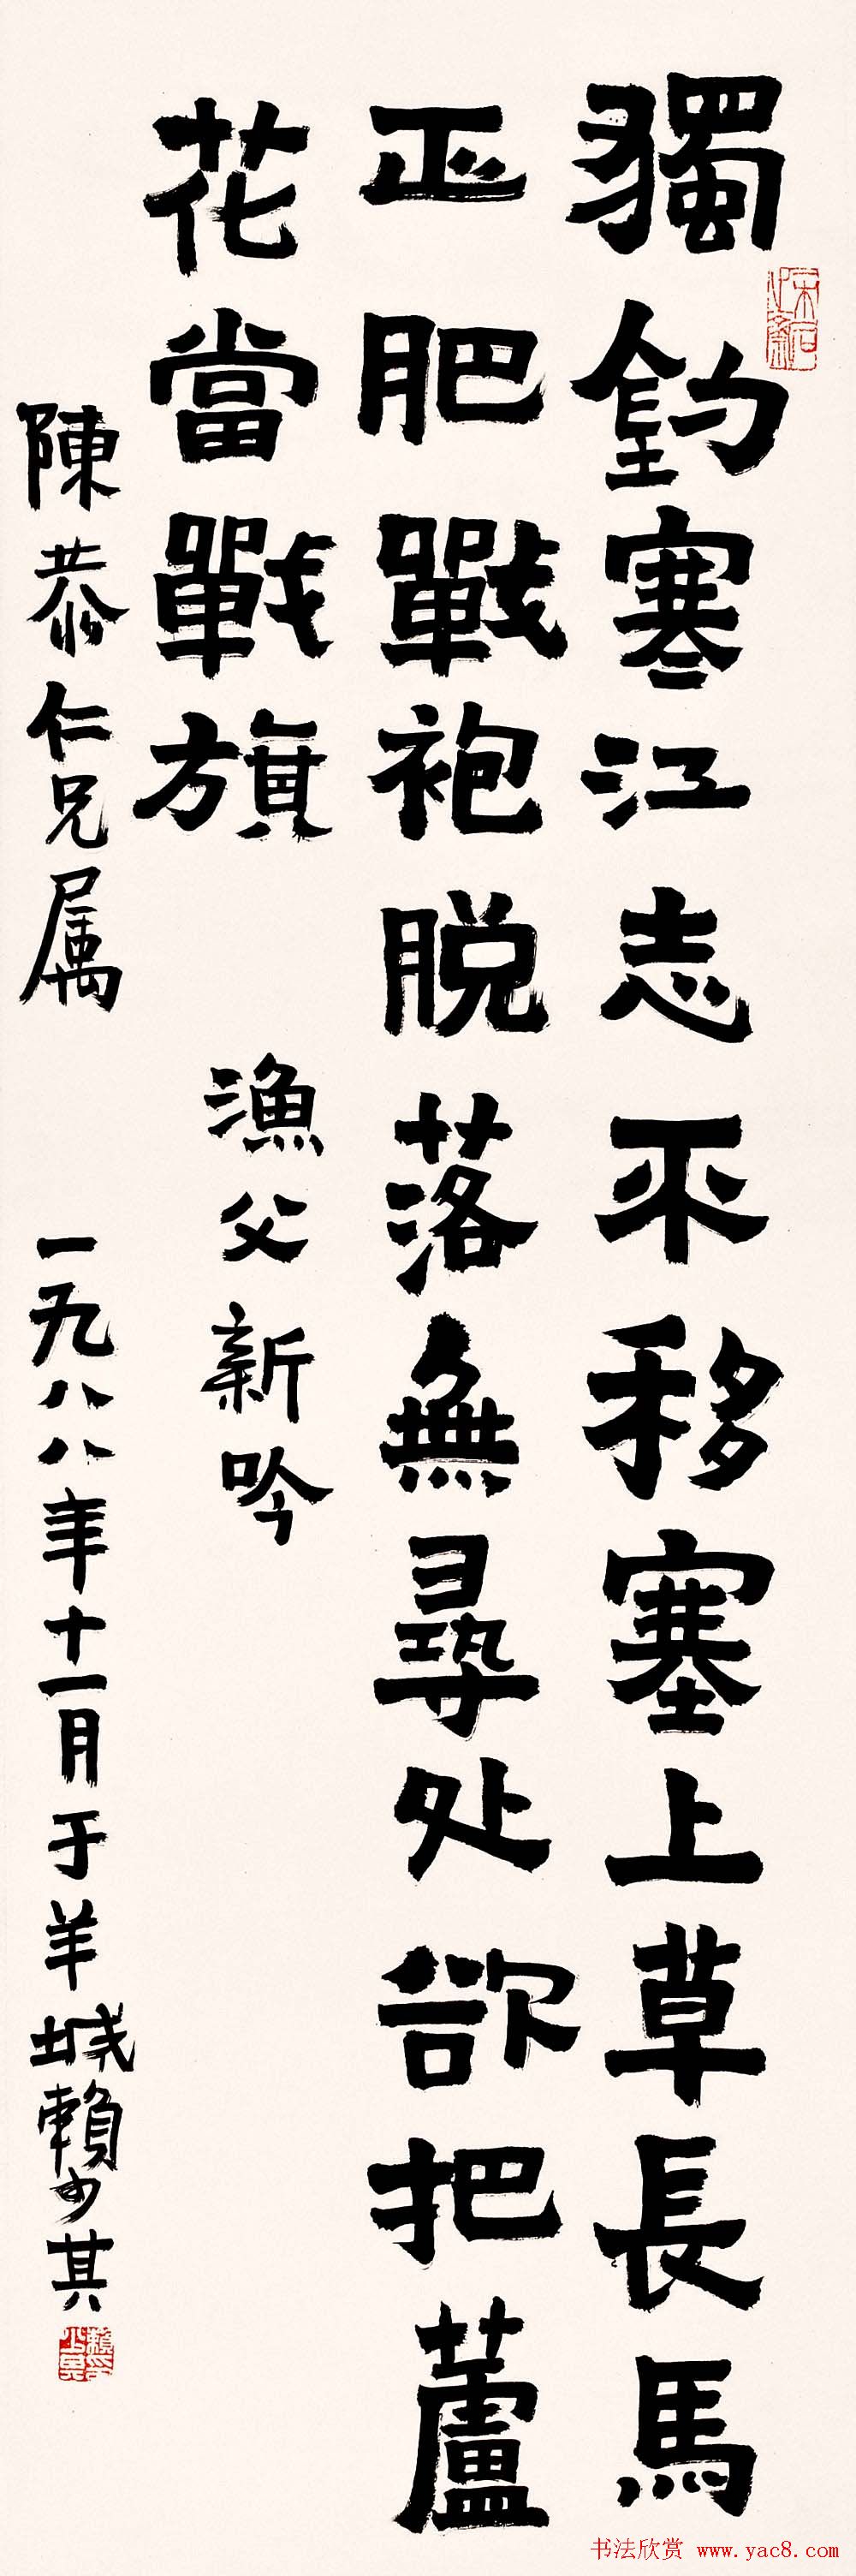 獨釣寒江志不移塞上草長馬
正肥戰袍脱落無尋处欲把蘆
花當戰旗
漁父新吟
陳恭仁兄属
一九八八年十一月于羊城賴少其
書法欣赏 www.yac8.com